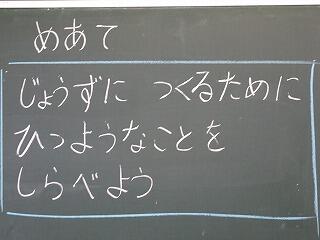 めあて
じょうずに つくるために
ひつようなことを
しらべよう